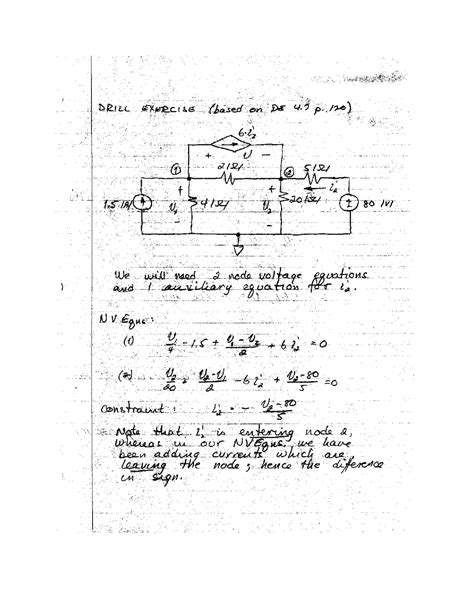 DRILL EXERCISE (based on DE 4.7 p. 120)
6i₂
+ v −
2[Ω]
① ② 5[Ω]
i₂
1.5[A] + v₁ − 4[Ω] + v₂ − 20[Ω] + − 80 [V]
We will need 2 node voltage equations
and 1 auxiliary equation for i₂.
NV Eqns:
(1) v₁/4 − 1.5 + (v₁ − v₂)/2 + 6i₂ = 0
(2) v₂/20 + (v₂ − v₁)/2 − 6i₂ + (v₂ − 80)/5 = 0
Constraint : i₂ = − (v₂ − 80)/5
Note that i₂ is entering node 2,
whereas in our NVEqns. we have
been adding currents which are
leaving the node ; hence the difference
in sign.